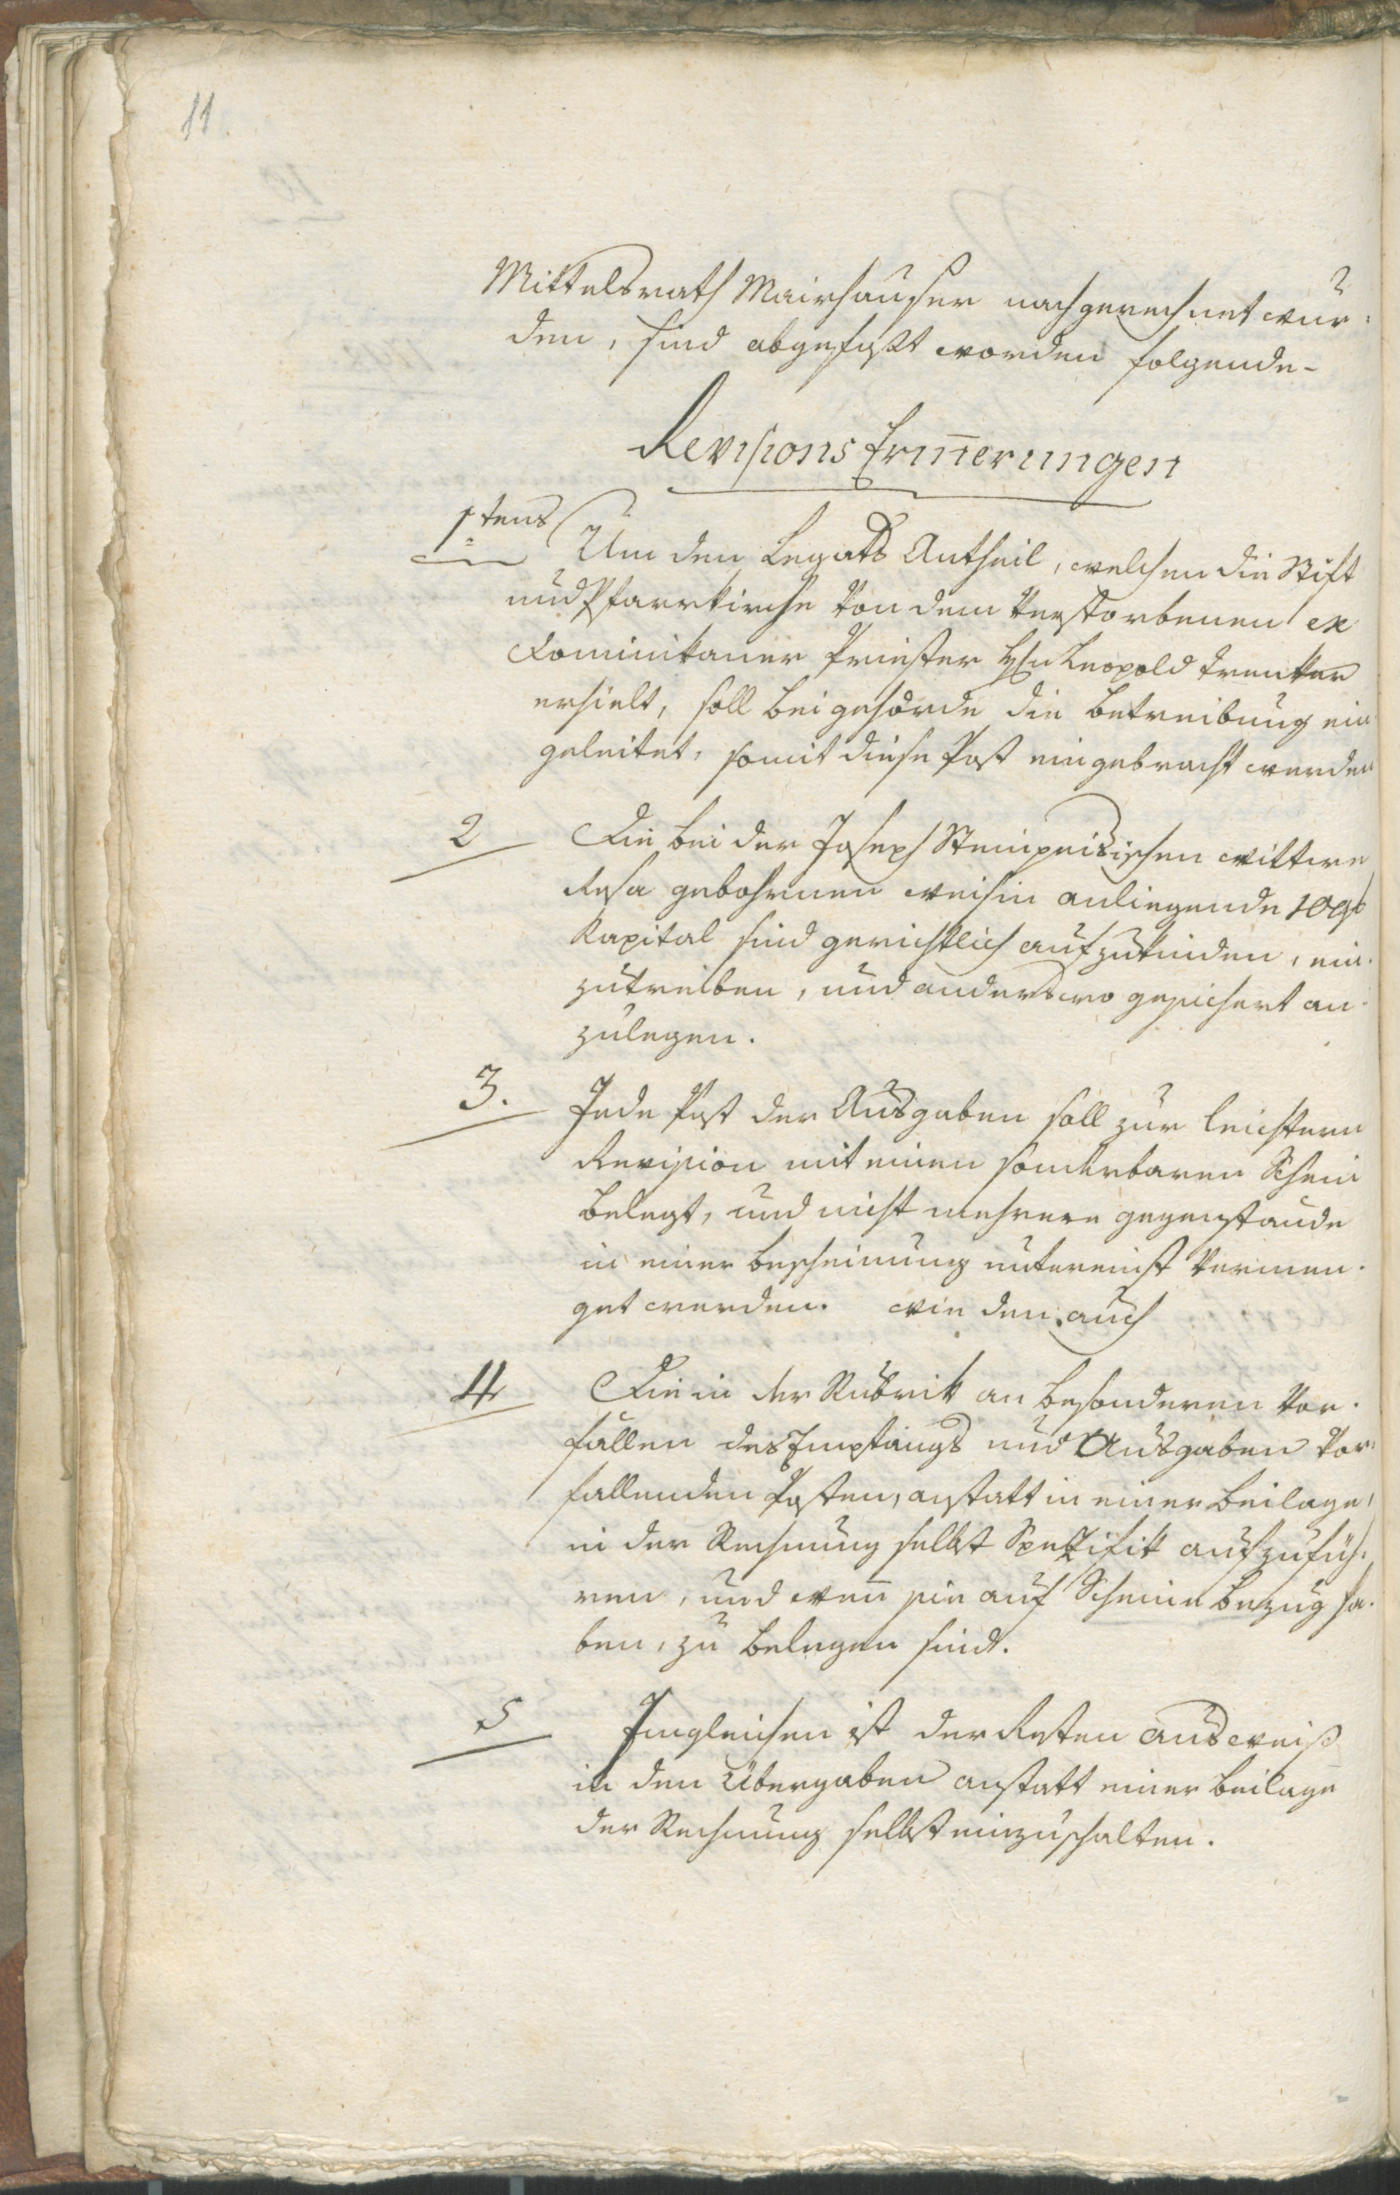 11.
Mittelsrath Mairhauser nachgerechnet wur¬
den, sind abgefaßt worden folgende-
Revisions Erinnerungen
1tens Um den Legats Antheil, welchen die Stift
und Pfarrkirche von dem verstorbenen ex
Dominikaner Priester Hrn Leopold Trenker
erhielt, soll bei gehörde die Betreibung ein
geleitet, somit diese Post eingebracht werden
2 Die bei der Joseph wittwe
Resa gebohrnen anliegende
Kapital sind gerichtlich aufzukinden, ein¬
zutreiben, und anderswo gesichert an¬
zulegen.
3. Jede Post der Ausgaben soll zur leichtern
Revision mit einen sonderbaren Schein
belegt, und nicht mehrere gegenstände
in einer bescheinung untereinst vermen¬
get werden. wie den auch
4 Die in der Rubrik an besonderen Vor¬
fällen des Empfangs und Ausgaben vor¬
fallenden Posten, anstatt in einer Beilage,
in der Rechnung selbst Spezifik aufzufüh¬
ren, und wenn sie auf Scheine bezug ha¬
ben, zu belegen sind.
5 Imgleichen ist der Resten Ausweiß
in den Übergaben anstatt einer Beilage
der Rechnung selbst einzuschalten.